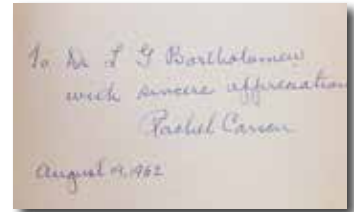 To Dr L G Bartholomew
with sincere appreciation
Rachel Carson
August 19, 1962